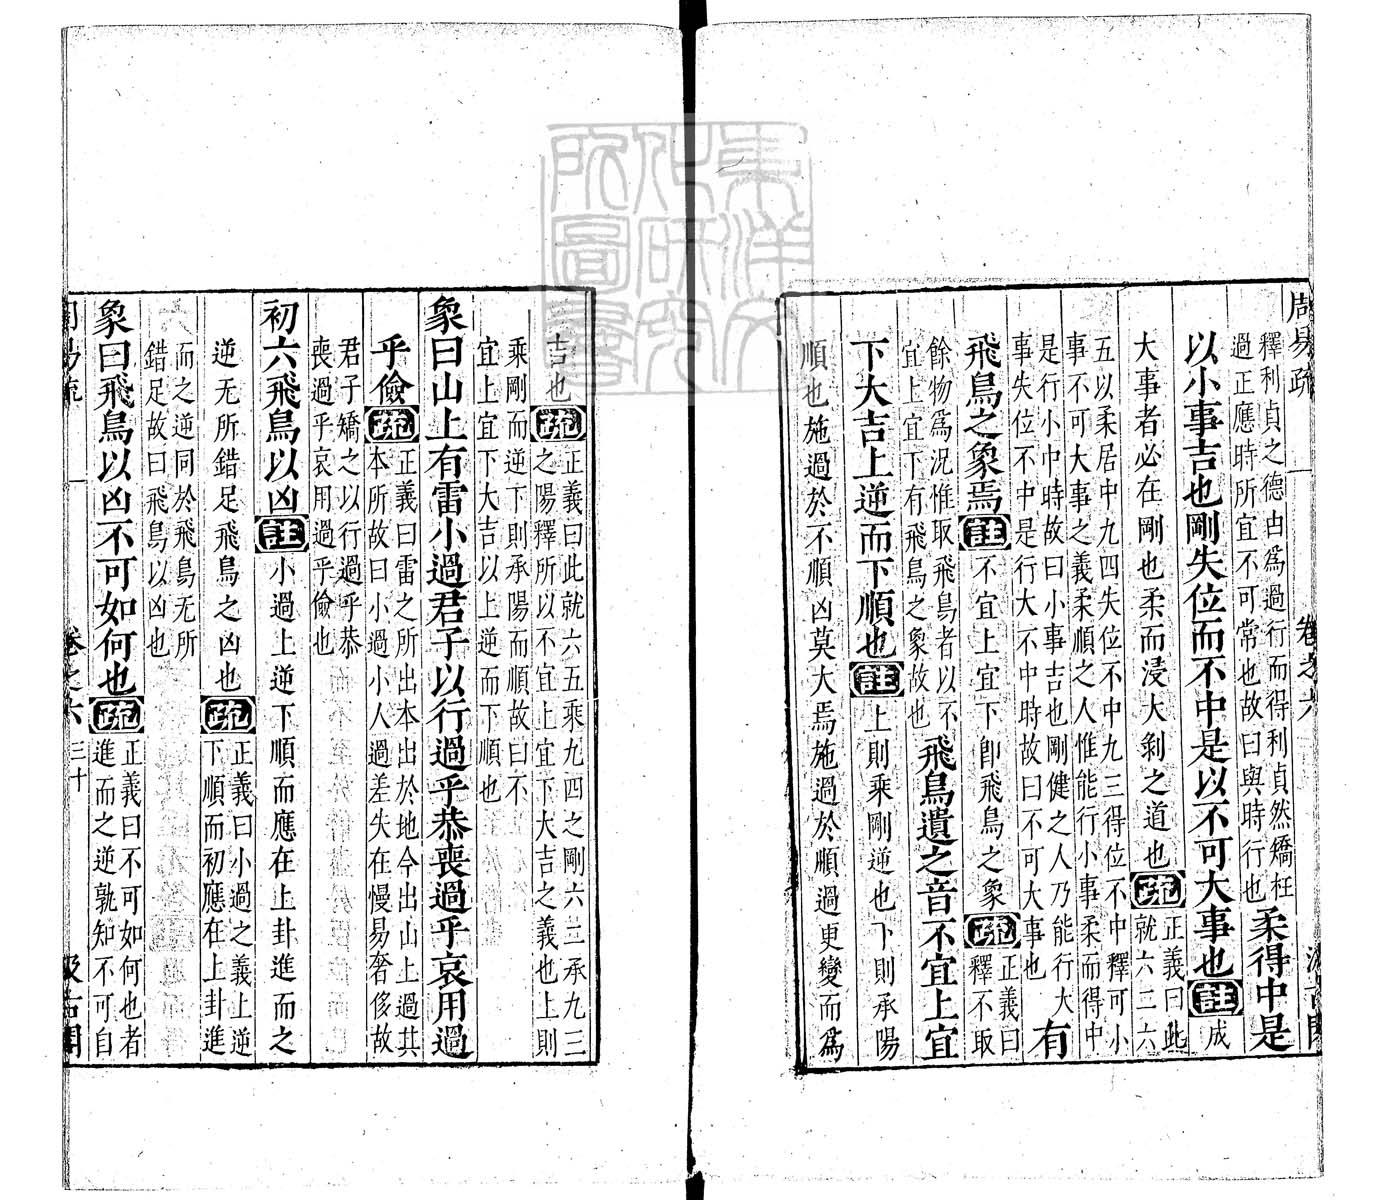 周易疏
卷之六
釋利貞之德由為過行而得利貞然矯枉
過正應時所宜不可常也故曰與時行也
柔得中是
以小事吉也剛失位而不中是以不可大事也註成
大事者必在剛也柔而浸大剝之道也疏
正義曰此
就六二六
五以柔居中九四失位不中九三得位不中釋可小
事不可大事之義柔順之人惟能行小事柔而得中
是行小中時故曰小事吉也剛健之人乃能行大
事失位不中是行大不中時故曰不可大事也
有
飛鳥之象焉註不宜上宜下卽飛鳥之象疏
正義曰
釋不取
餘物為況惟取飛鳥者以不
宜上宜下有飛鳥之象故也
飛鳥遺之音不宜上宜
下大吉上逆而下順也註上則乘剛逆也下則承陽
順也施過於不順凶莫大焉施過於順過更變而為
吉也疏
正義曰此就六五乘九四之剛六二承九三
之陽釋所以不宜上宜下大吉之義也上則
乘剛而逆下則承陽而順故曰不
宜上宜下大吉以上逆而下順也
象曰山上有雷小過君子以行過乎恭喪過乎哀用過
乎儉疏
正義曰雷之所出本出於地今出山上過其
本所故曰小過小人過差失在慢易奢侈故
君子矯之以行過乎恭
喪過乎哀用過乎儉也
初六飛鳥以凶註小過上逆下順而應在上卦進而之
逆无所錯足飛鳥之凶也疏
正義曰小過之義上逆
下順而初應在上卦進
而之逆同於飛鳥无所
錯足故曰飛鳥以凶也
象曰飛鳥以凶不可如何也疏
正義曰不可如何也者
進而之逆孰知不可自
周易疏
卷之六
三十
汲古閣
東洋文
化研究
所圖書